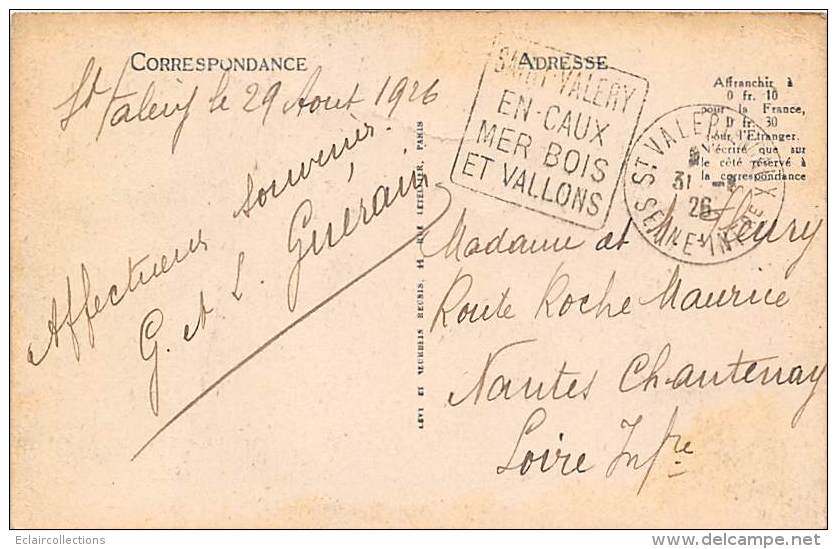 CORRESPONDANCE
St Valery le 29 Aout 1926
Affectueux souvenir
G. et L. Guérain
LEVY ET NEURDEIN REUNIS, 44 RUE LETELLIER, PARIS
ADRESSE
SAINT-VALERY
EN-CAUX
MER BOIS
ET VALLONS
ST VALERY EN CAUX
31 - 8
26
SEINE INFRE
Affranchir à
0 fr. 10
pour la France,
0 fr. 30
pour l'Etranger.
N'écrire que sur
le côté réservé à
la correspondance
Madame et Mr Fleury
Route Roche Maurice
Nantes Chantenay
Loire Infre
Eclaircollections
delcampe.net